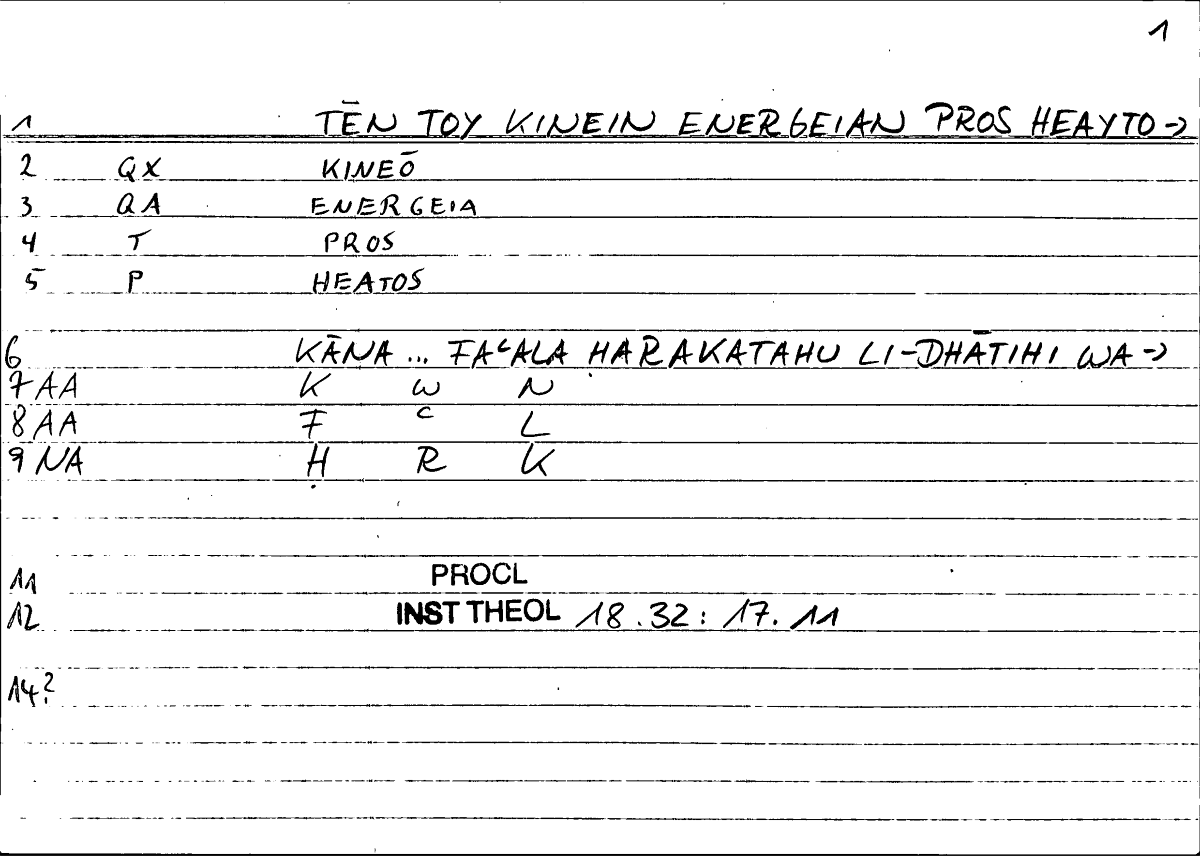 1
1 TĒN TOY KINEIN ENERGEIAN PROS HEAYTO→
2 QX KINEŌ
3 QA ENERGEIA
4 T PROS
5 P HEATOS
6 KĀNA ... FAʿALA ḤARAKATAHU LI-DHĀTIHI WA→
7 AA K W N
8 AA F ʿ L
9 NA Ḥ R K
11 PROCL
12 INST THEOL 18.32: 17.11
14?